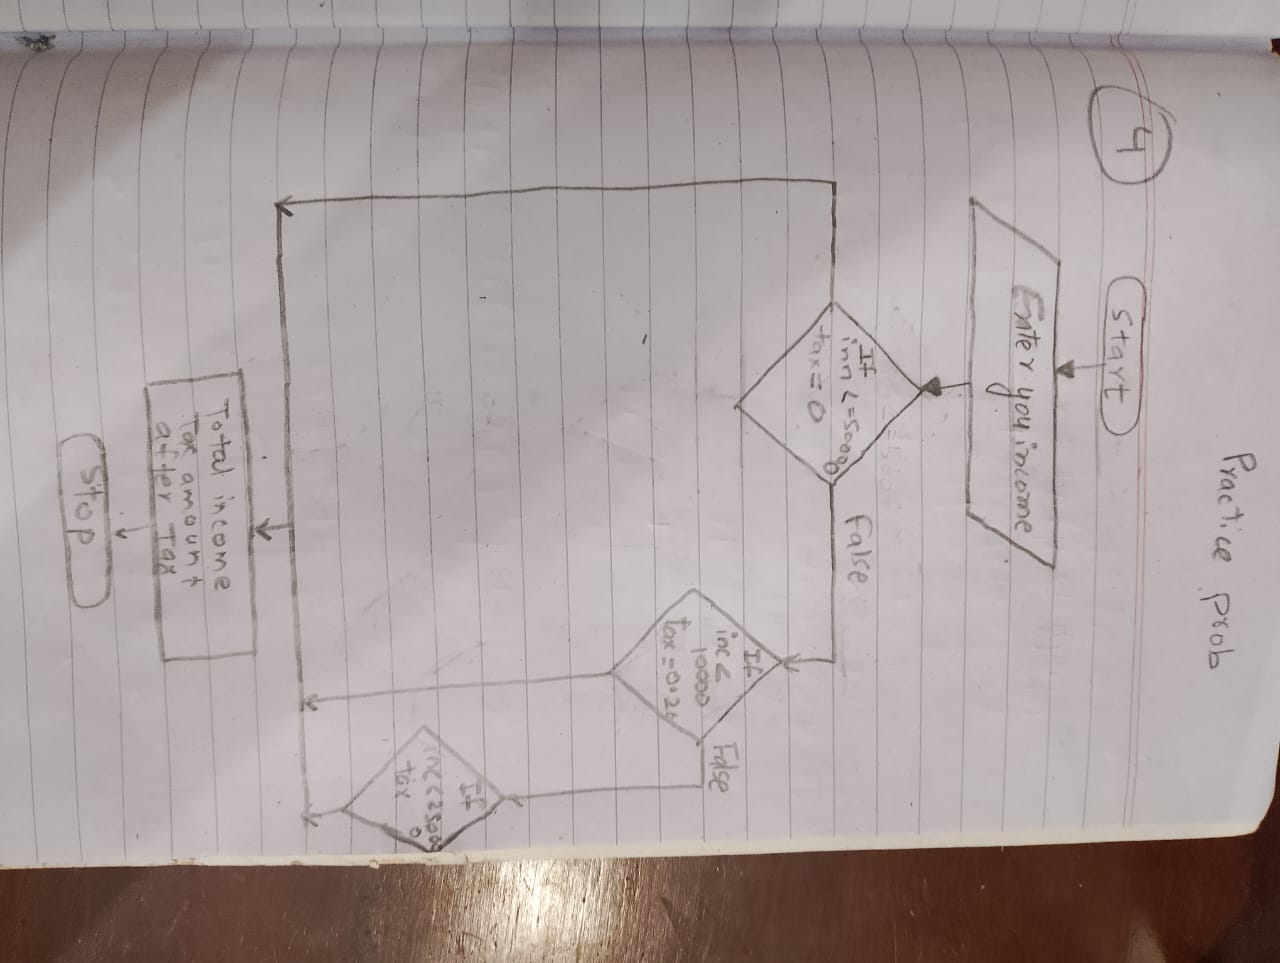 Practice prob
4
Start
Enter you income
If
inn <=5000
0
tax = 0
False
If
inc <
10000
False
If
tax
Total income
Tax amount
after Tax
Stop